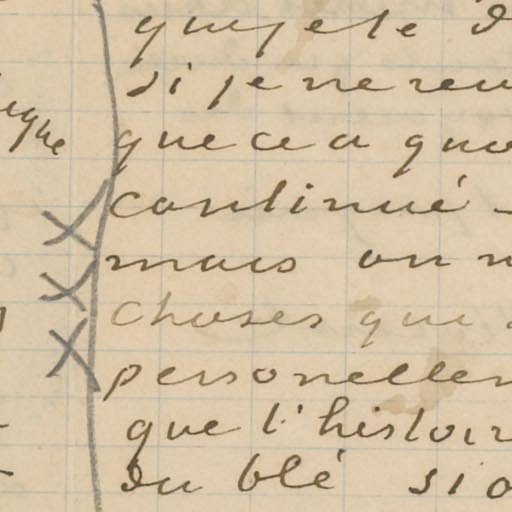 que je te d
si je ne reu
que ce a quo
continué -
mais on n
choses que
personellen
que l'histoir
du blé si o